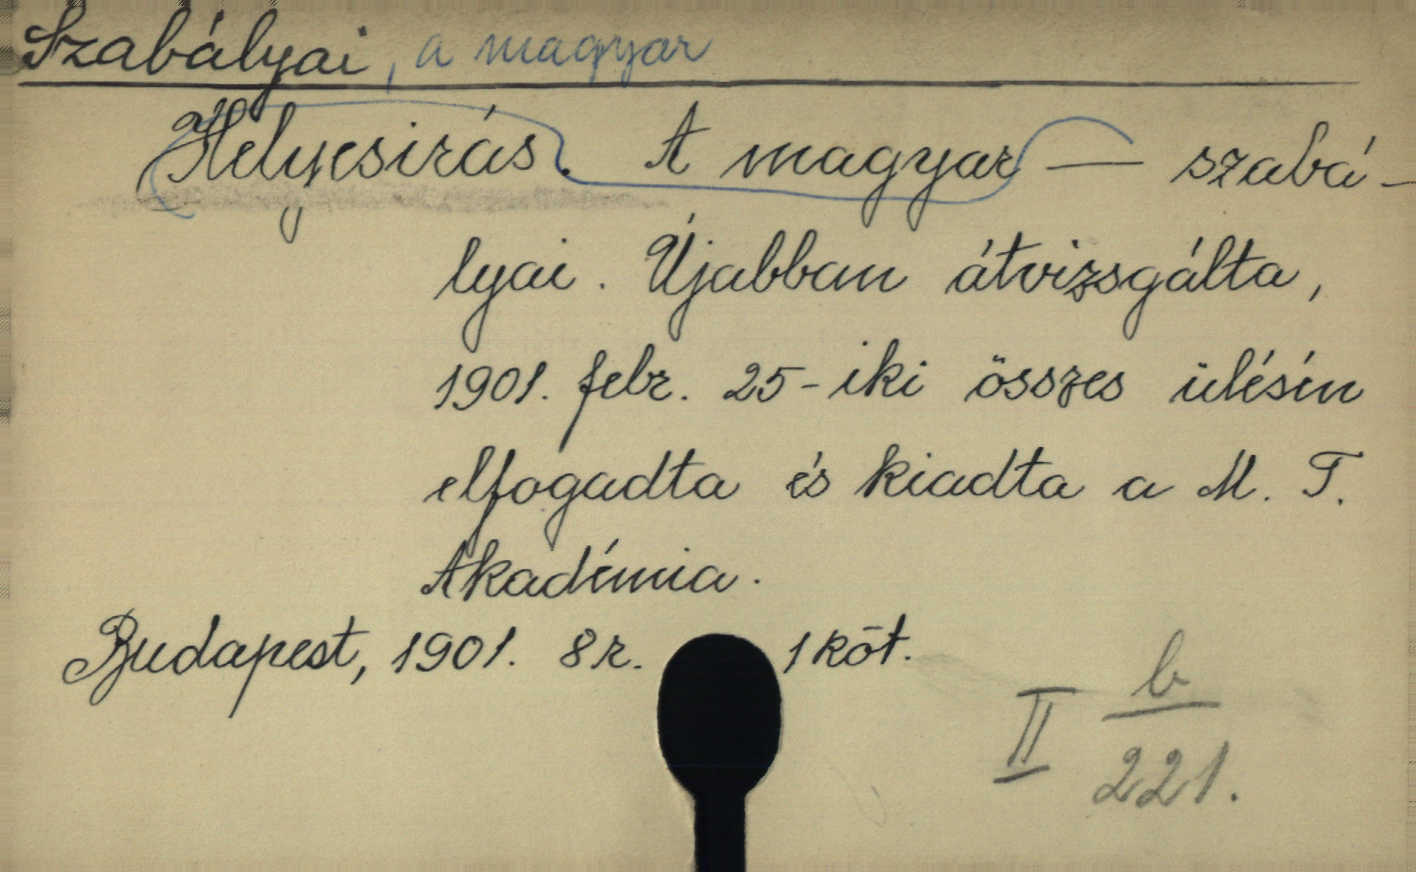 Szabályai, a magyar
Helyesirás. A magyar — szabá-
lyai. Újabban átvizsgálta,
1901. febr. 25-iki összes ülésén
elfogadta és kiadta a M. T.
Akadémia.
Budapest, 1901. 8r. 1 köt.
II b/221.